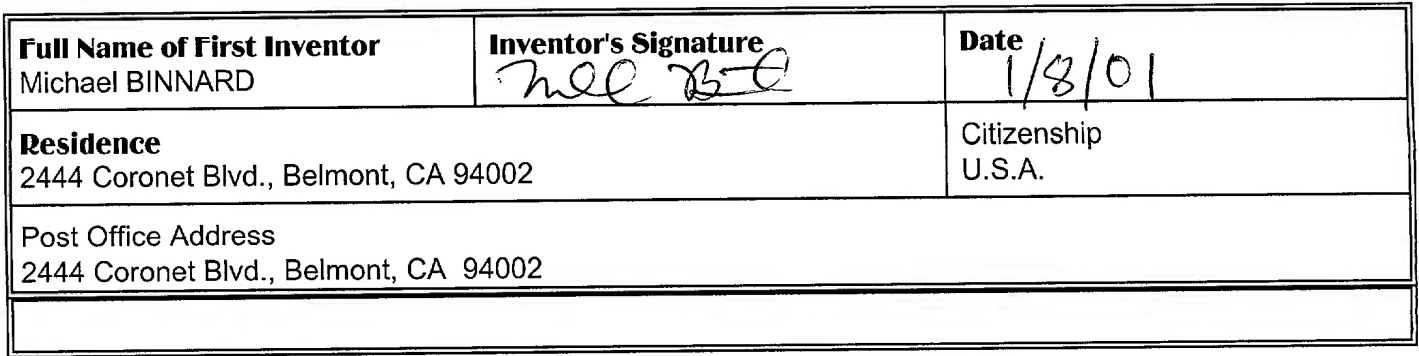 Full Name of First Inventor
Michael BINNARD
Inventor's Signature
Date
1/8/01
Residence
2444 Coronet Blvd., Belmont, CA 94002
Citizenship
U.S.A.
Post Office Address
2444 Coronet Blvd., Belmont, CA 94002